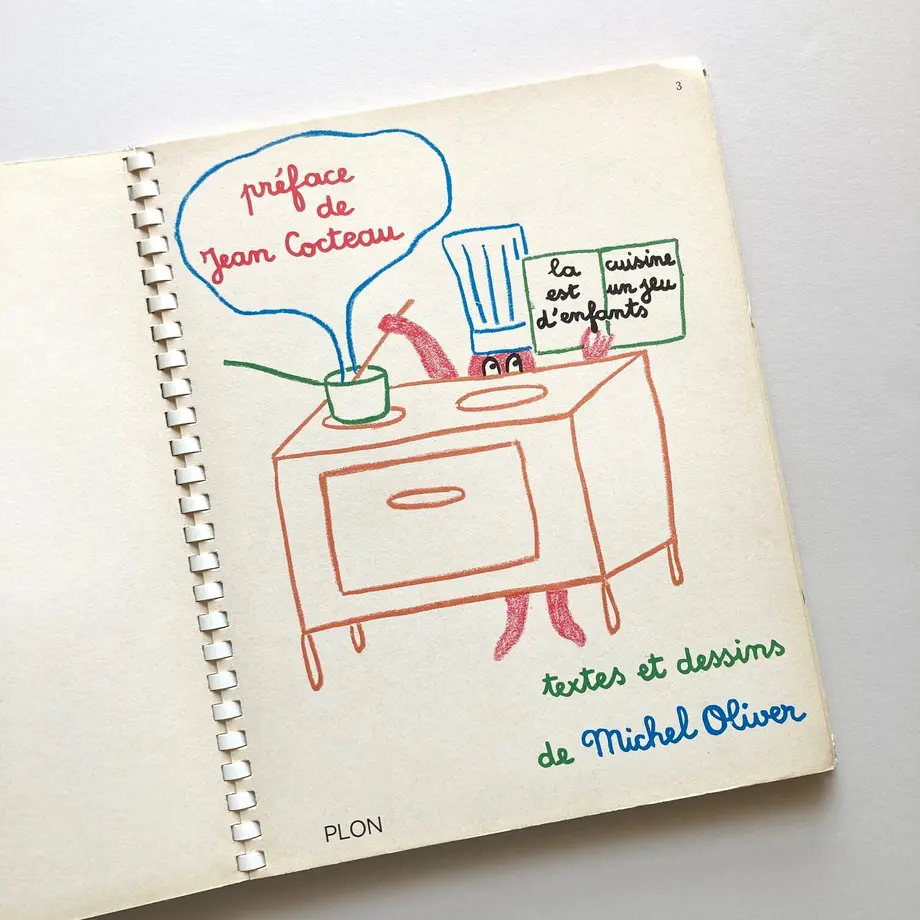 3
préface
de
Jean Cocteau
la cuisine
est un jeu
d'enfants
textes et dessins
de Michel Oliver
PLON